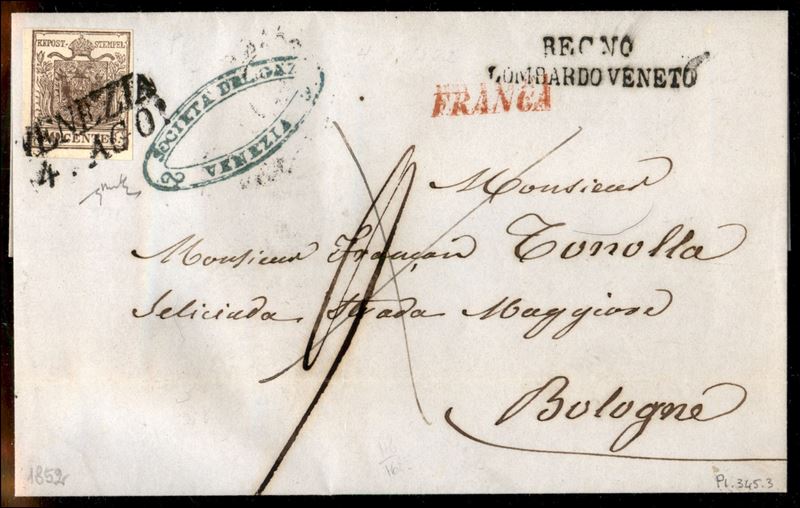 KKPOST-STEMPEL
CENTES
VENEZIA
4. AGO.
SOCIETÀ DEL GAZ
VENEZIA
REGNO
LOMBARDO VENETO
FRANCA
Monsieur
Monsieur Françon Tonolla
Seliciada Strada Maggiore
Bologne
1852
Pl. 345.3